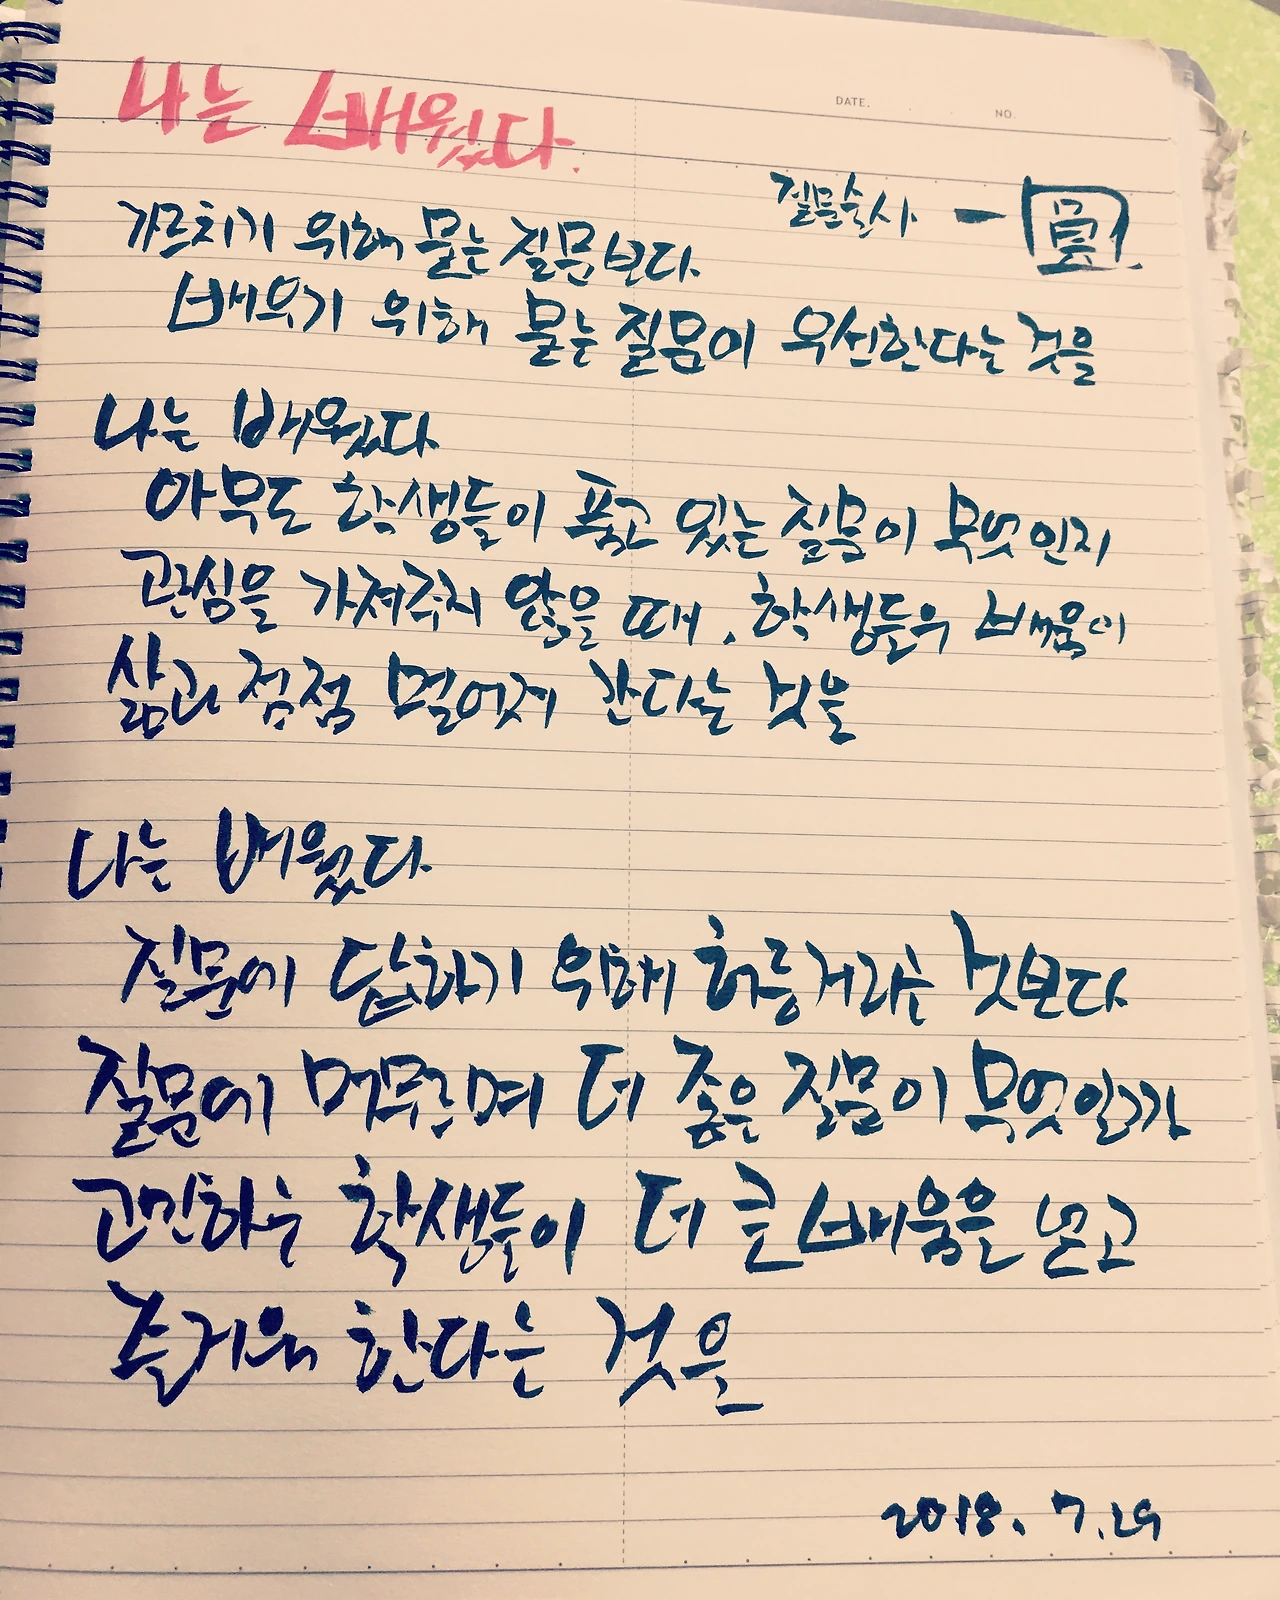 나는 배웠다.
DATE. NO.
질문술사 - 圓
가르치기 위해 묻는 질문보다
배우기 위해 묻는 질문이 우선한다는 것을
나는 배웠다
아무도 학생들이 품고 있는 질문이 무엇인지
관심을 가져주지 않을 때, 학생들의 배움이
삶과 점점 멀어져 간다는 것을
나는 배웠다
질문에 답하기 위해 허둥거리는 것보다
질문에 머무르며 더 좋은 질문이 무엇일까
고민하는 학생들이 더 큰 배움을 얻고
즐거워 한다는 것을
2018. 7.29